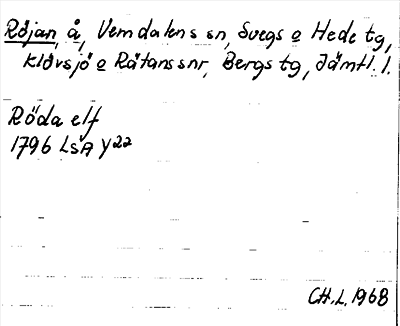 Röjan, å, Vemdalens sn, Svegs o Hede tg,
Klövsjö o Rätans snr, Bergs tg, Jämtl. l.
Röda elf
1796 LSA Y22
CH.L. 1968